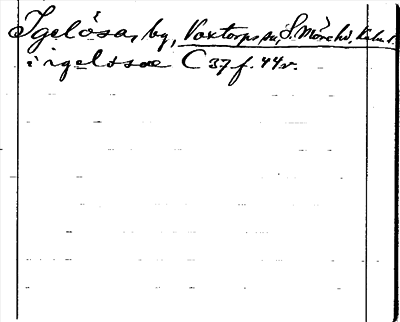 Igelösa, by, Voxtorps sn, S. Möre hd, Kalm. l.
i igelssoe C 37 f. 44v.